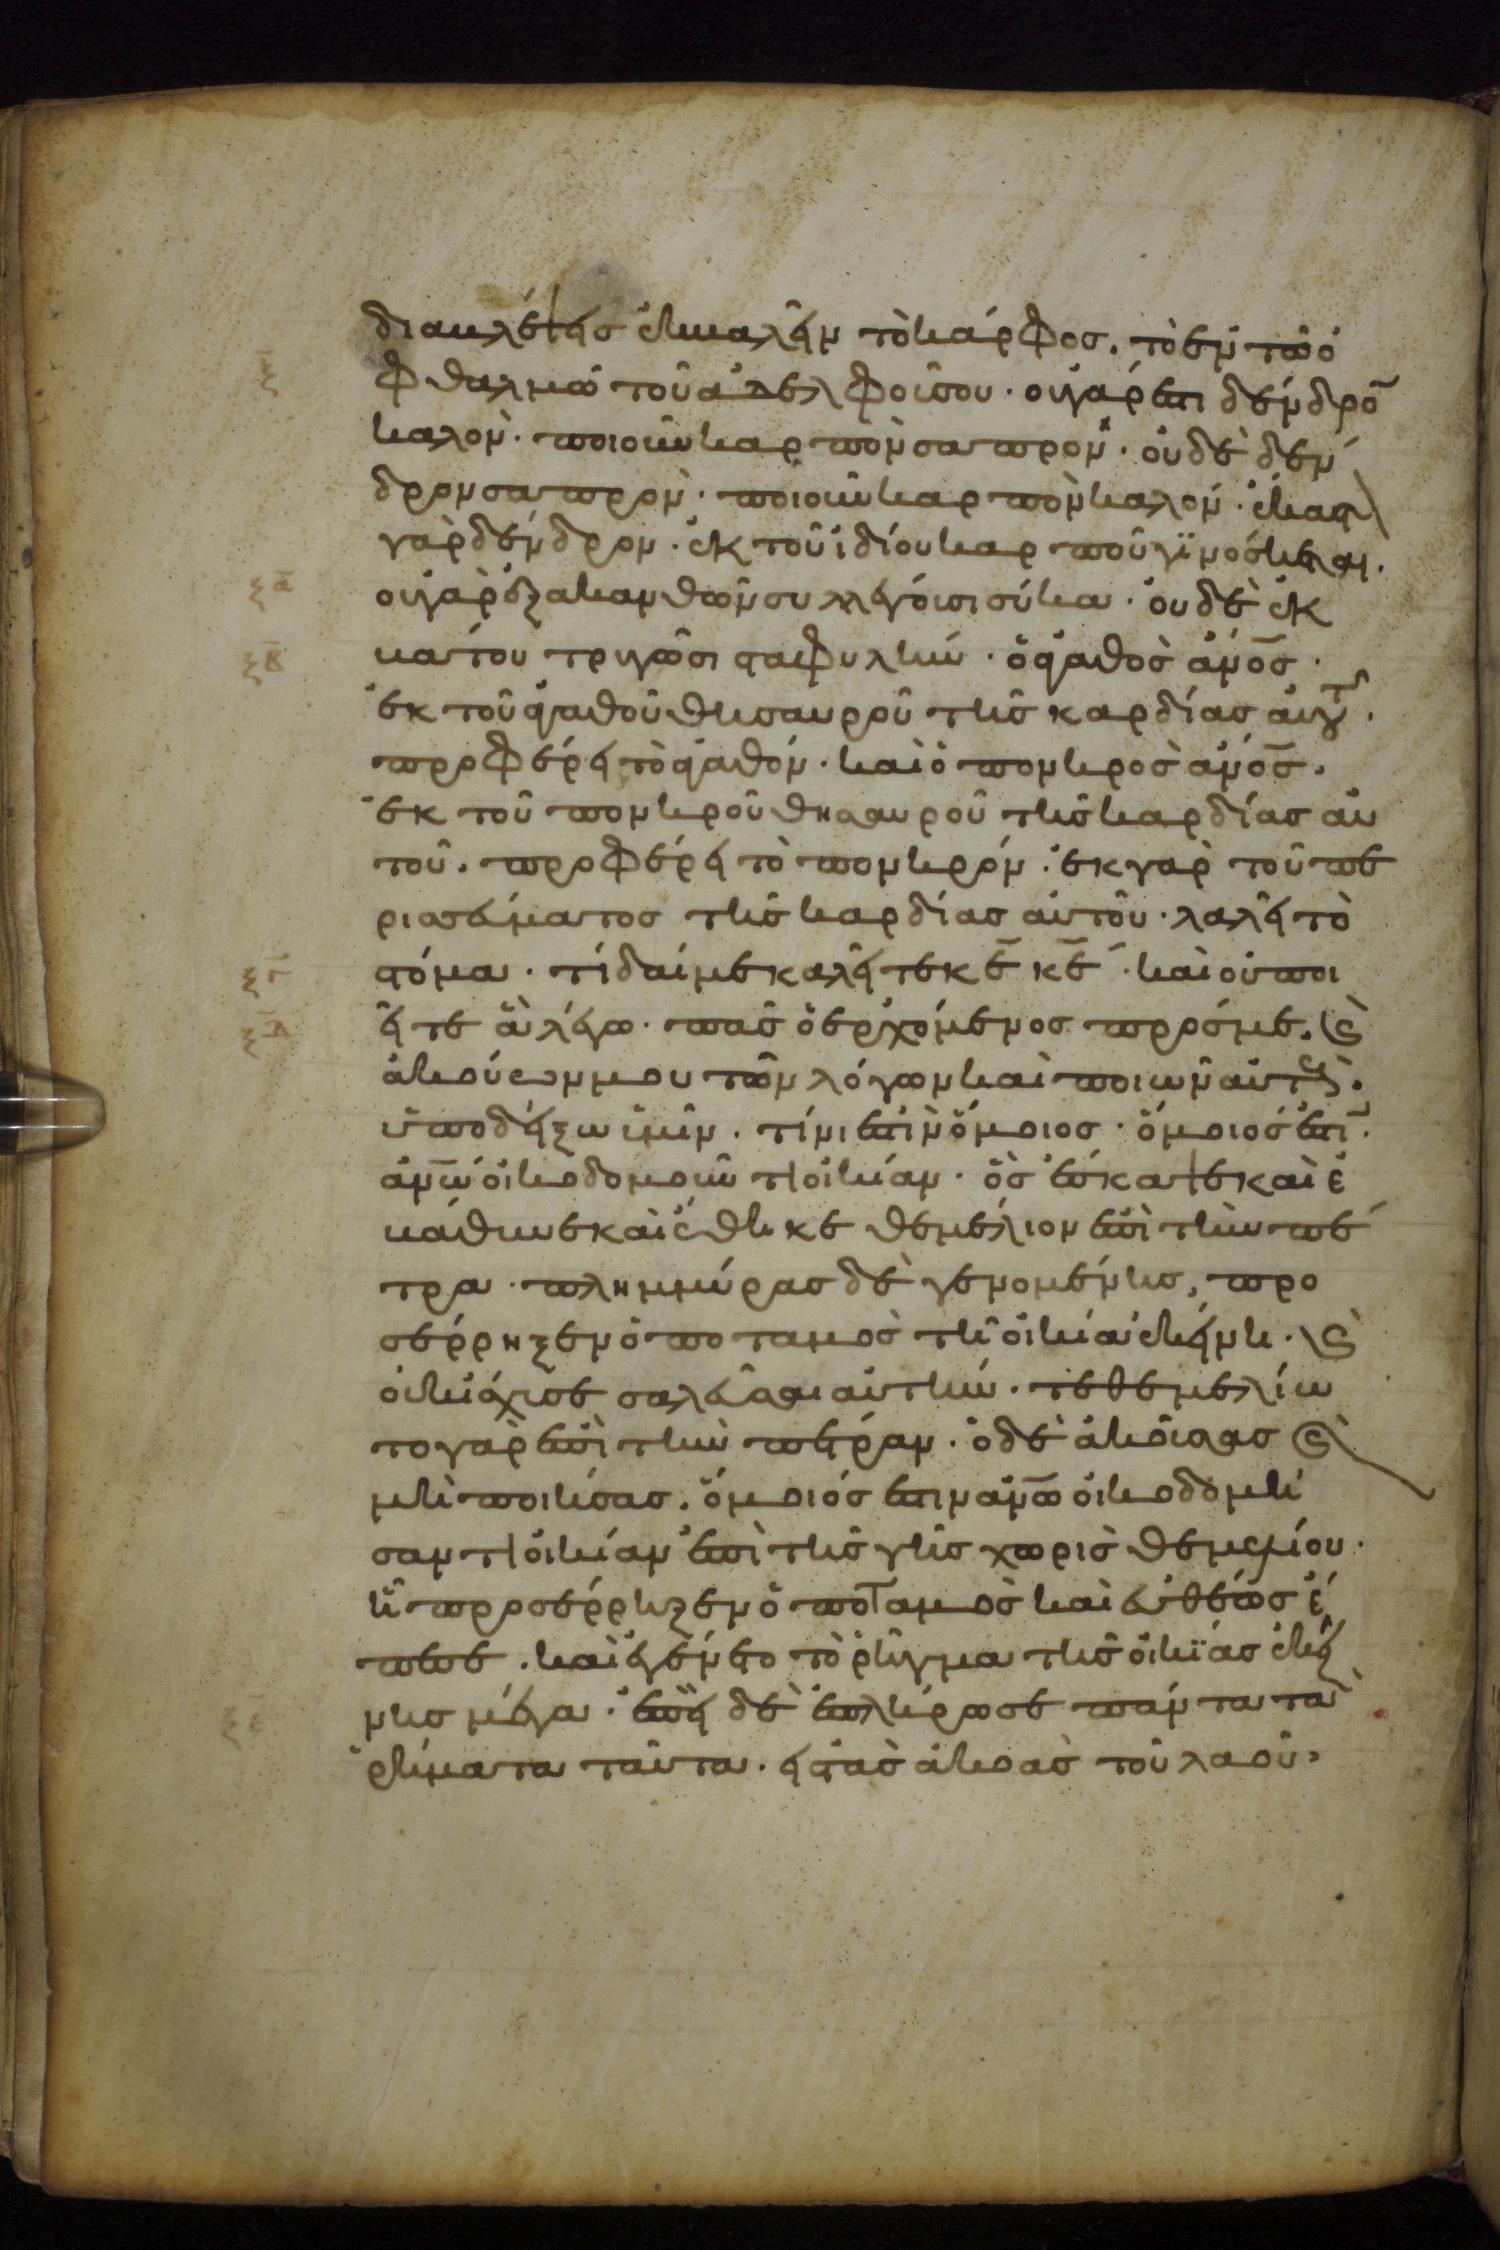 διαβλέψεις ἐκβαλεῖν τὸ κάρφος. τὸ ἐν τῶ ὀ
ξ̅ φθαλμῶ τοῦ ἀδελφοῦ σου· οὐ γάρ ἐστι δένδρο̅
καλὸν· ποιοῦν καρπὸν σαπρον· οὐδὲ δέν
δρον σαπρὸν· ποιοῦν καρπὸν καλόν· ἕκαστ
γὰρ δένδρον· ἐκ τοῦ ἰδίου καρποῦ γϊνώσκεται.
ξα̅ οὐ γὰρ ἐξ ακανθῶν συλλέγουσι σύκα· οὐδὲ ἐκ
ξβ̅ βάτου τρυγῶσι σταφυλήν· ὁ ἀγαθὸς ἄνο̅ς·
ἐκ τοῦ ἀγαθοῦ θησαυροῦ τῆς καρδίας αὐτοῦ·
προφέρει τὸ ἀγαθόν· καὶ ὁ πονηρὸς ἄνο̅ς.
ἐκ τοῦ πονηροῦ θησαυροῦ τῆς καρδίας αὐ
τοῦ. προφέρει τὸ πονηρόν· ἐκ γαρ τοῦ πε
ρισσεύματος τῆς καρδίας αὐτοῦ· λαλεῖ τὸ
ξγ̅ στόμα· τί δαί με καλεῖτε κ̅ε κ̅ε· καὶ οὐ ποι
ξδ̅ εῖτε ἃ λέγω· πᾶς ὁ ἐρχόμενος πρόσμε. ϗ
ἀκούων μου τῶν λόγων καὶ ποιῶν αὐτοὺς.
ὑποδείξω ὑμῖν. τίνι ἐστὶν ὅμοιος· ὅμοιός ἐστι̅·
ἀν̅ω οἰκοδομοῦντι οἰκίαν· ὃς ἔσκαψε καὶ ἐ
βάθυνε καὶ ἔθηκε θεμέλιον ἐπὶ τὴν πέ
τρα· πλημμύρας δὲ γενομένης, προ
σέρρηξεν ὁ ποταμὸς τῆ οἰκία ἐκείνη· ϗ
οὐκ ἴσχυσε σαλεῦσαι αὐτήν· τεθεμελίω
το γὰρ ἐπὶ τὴν πέτραν· ὁ δὲ ἀκούσας ϗ
μὴ ποιήσας. ὅμοιός ἐστιν ἀν̅ω οἰκοδομή
σαντι οἰκίαν ἐπὶ τῆς γῆς χωρὶς θεμελίου·
ἧ προσέρρηξεν ὁ ποταμὸς καὶ εὐθέως ἔ
πεσε. καὶ ἐγένετο τὸ ῥῆγμα τῆς οἰκϊας ἐκεί
ξε̅ νης μέγα· ἐπεὶ δὲ ἐπλήρωσε πάντα τὰ
ῥήματα ταῦτα· εἰς τὰς ἀκοὰς τοῦ λαοῦ,